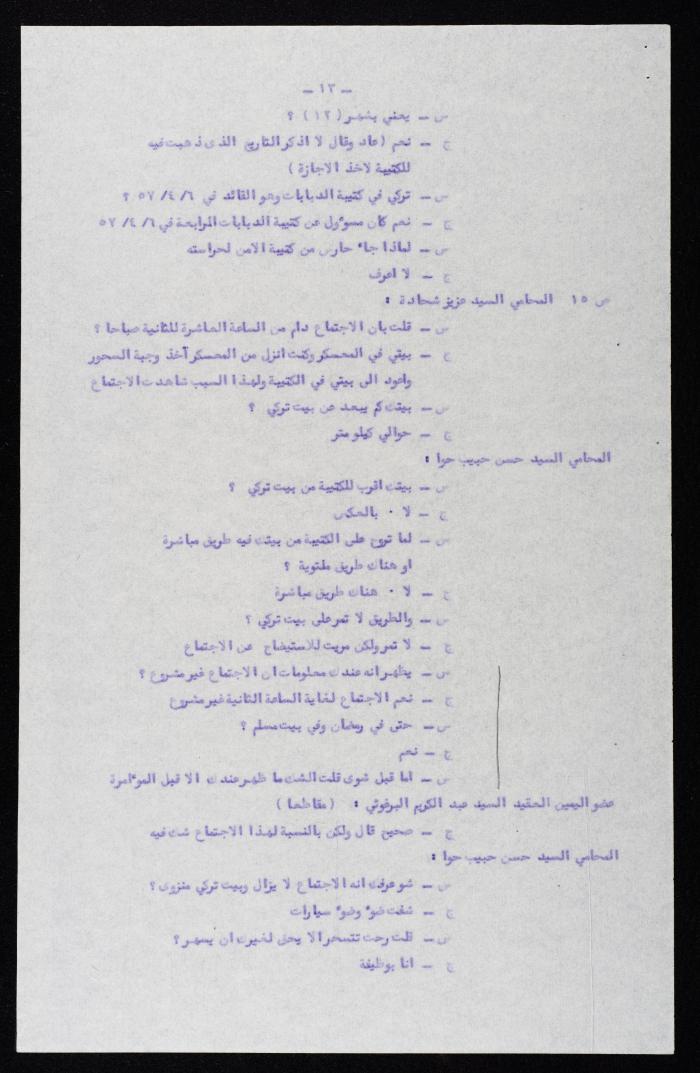 — ١٣ —
س — يعني بشهر (١٢) ؟
ج — نعم (عاد وقال لا اذكر التاريخ الذى ذهبت فيه
للكتيبة لاخذ الاجازة )
س — تركي في كتيبة الدبابات وهو القائد في ٦/ ٤/ ٥٧ ؟
ج — نعم كان مسوءول عن كتيبة الدبابات الرابعة في ٦/ ٤/ ٥٧
س — لماذا جاء حارس من كتيبة الامن لحراسته
ج — لا اعرف
س ١٥ المحامي السيد عزيز شحادة :
س — قلت بان الاجتماع دام من الساعة العاشرة للثانية صباحا ؟
ج — بيتي في المعسكر وكنت انزل من المعسكر آخذ وجبة السحور
واعود الى بيتي في الكتيبة ولهذا السبب شاهدت الاجتماع
س — بيتك كم يبعد عن بيت تركي ؟
ج — حوالي كيلو متر
المحامي السيد حسن حبيب حوا :
س — بيتك اقرب للكتيبة من بيت تركي ؟
ج — لا ٠ بالعكس
س — لما تروح على الكتيبة من بيتك فيه طريق مباشرة
او هناك طريق ملتوية ؟
ج — لا ٠ هناك طريق مباشرة
س — والطريق لا تمر على بيت تركي ؟
ج — لا تمر ولكن مريت للاستيضاح عن الاجتماع
س — يظهر انه عندك معلومات ان الاجتماع غير مشروع ؟
ج — نعم الاجتماع لغاية الساعة الثانية غير مشروع
س — حتى في رمضان وفي بيت مسلم ؟
ج — نعم
س — اما قبل شوى قلت الشك ما ظهر عندك الا قبل الموءامرة
عضو اليمين العقيد السيد عبد الكريم البرغوثي : (مقاطعا )
ج — صحيح قال ولكن بالنسبة لهذا الاجتماع شك فيه
المحامي السيد حسن حبيب حوا :
س — شو عرفك انه الاجتماع لا يزال وبيت تركي منزوى ؟
ج — شفت ضوء وضوء سيارات
س — قلت رحت تتسحر الا يحق لغيرك ان يسهر ؟
ج — انا بوظيفة